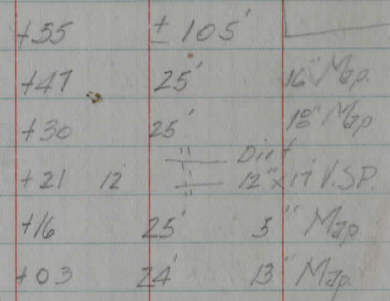 +55 ± 105'
+47 25' 16" Map.
+30 25' 18" Map
Dirt
+21 12 12" x 17' V.S.P.
+16 25' 5" Map
+03 24' 13" Map